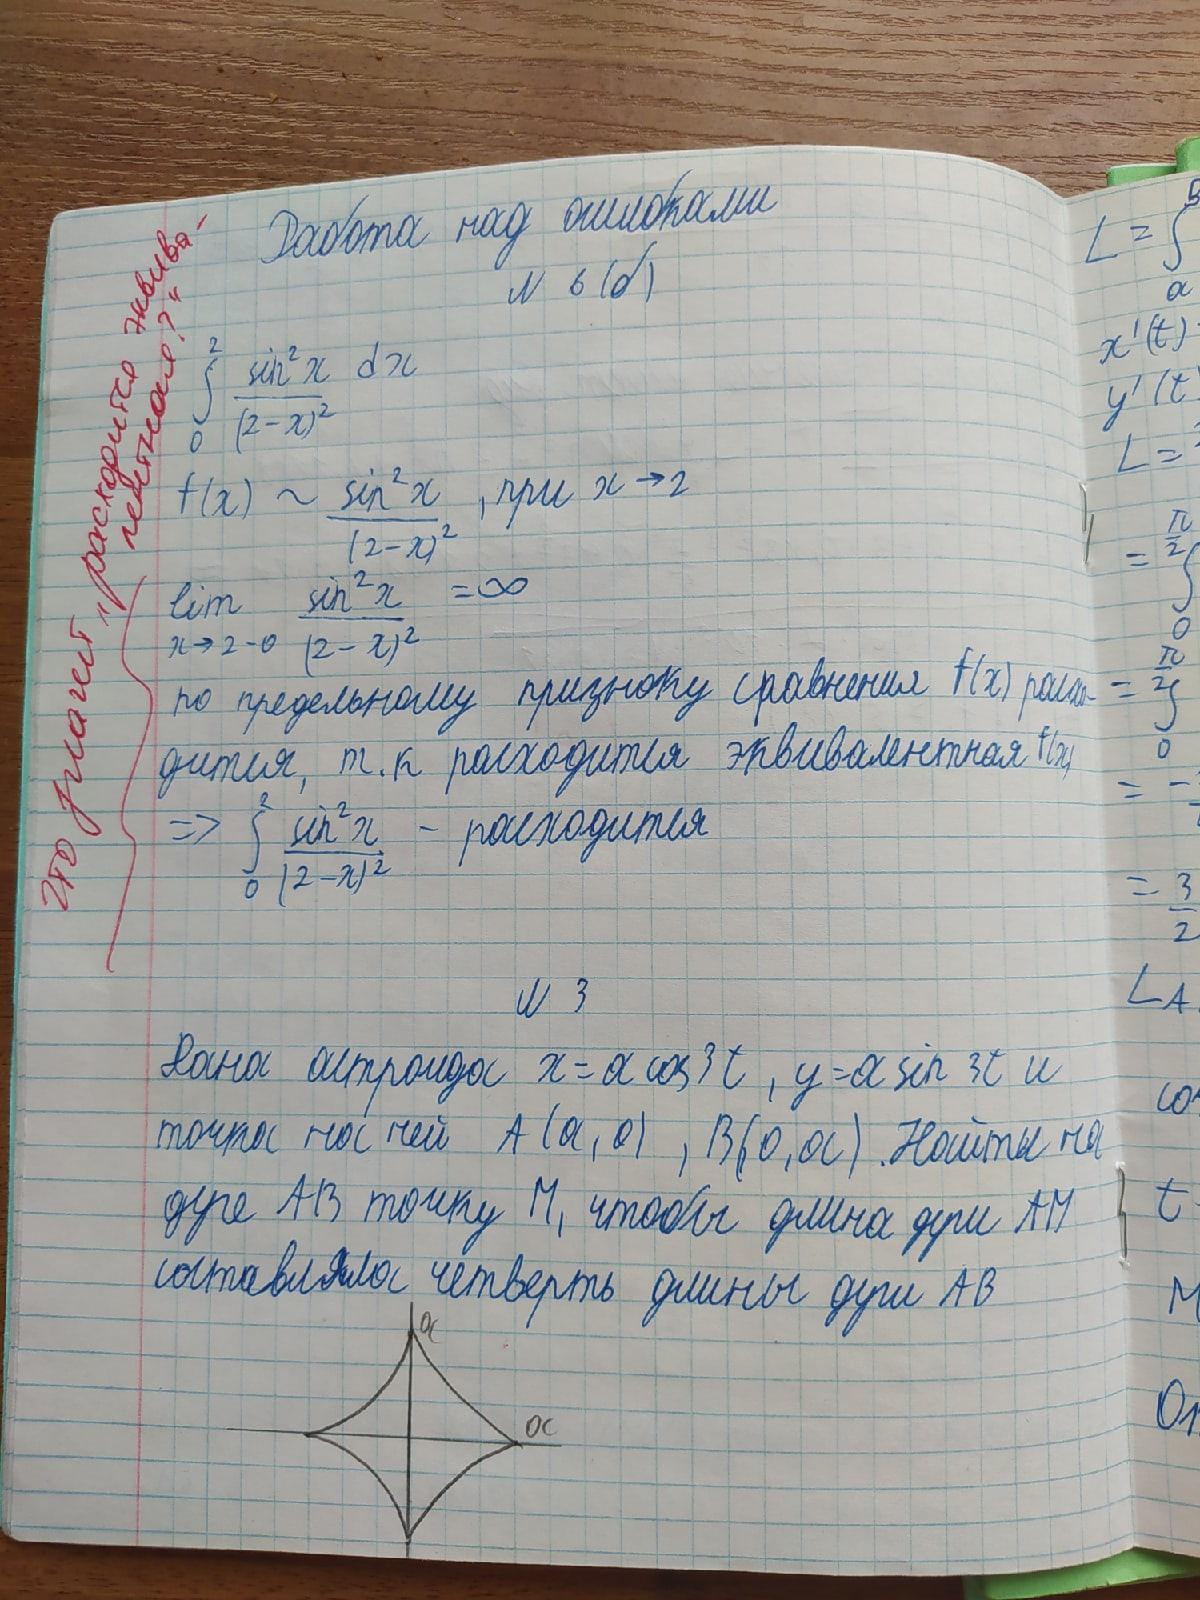 Работа над ошибками
N 6 (б)
∫₀² sin²x/(2-x)² dx
f(x) ~ sin²x/(2-x)², при x→2
lim x→2-0 sin²x/(2-x)² = ∞
по предельному признаку сравнения f(x) расхо-
дится, т.к расходится эквивалентная f(x)
=> ∫₀² sin²x/(2-x)² - расходится
Что значит "расходится эквива-
лентная?"
N 3
Дана астроида x=a cos 3t, y=a sin 3t и
точка на ней A(a,0), B(0,a). Найти на
дуге AB точку M, чтобы длина дуги AM
составляла четверть длины дуги AB
a
a
L = ∫
a
x'(t)
y'(t
L =
= π/2 ∫ 0
= π/2 ∫ 0
= -
= 3/2
L A
co
t
M